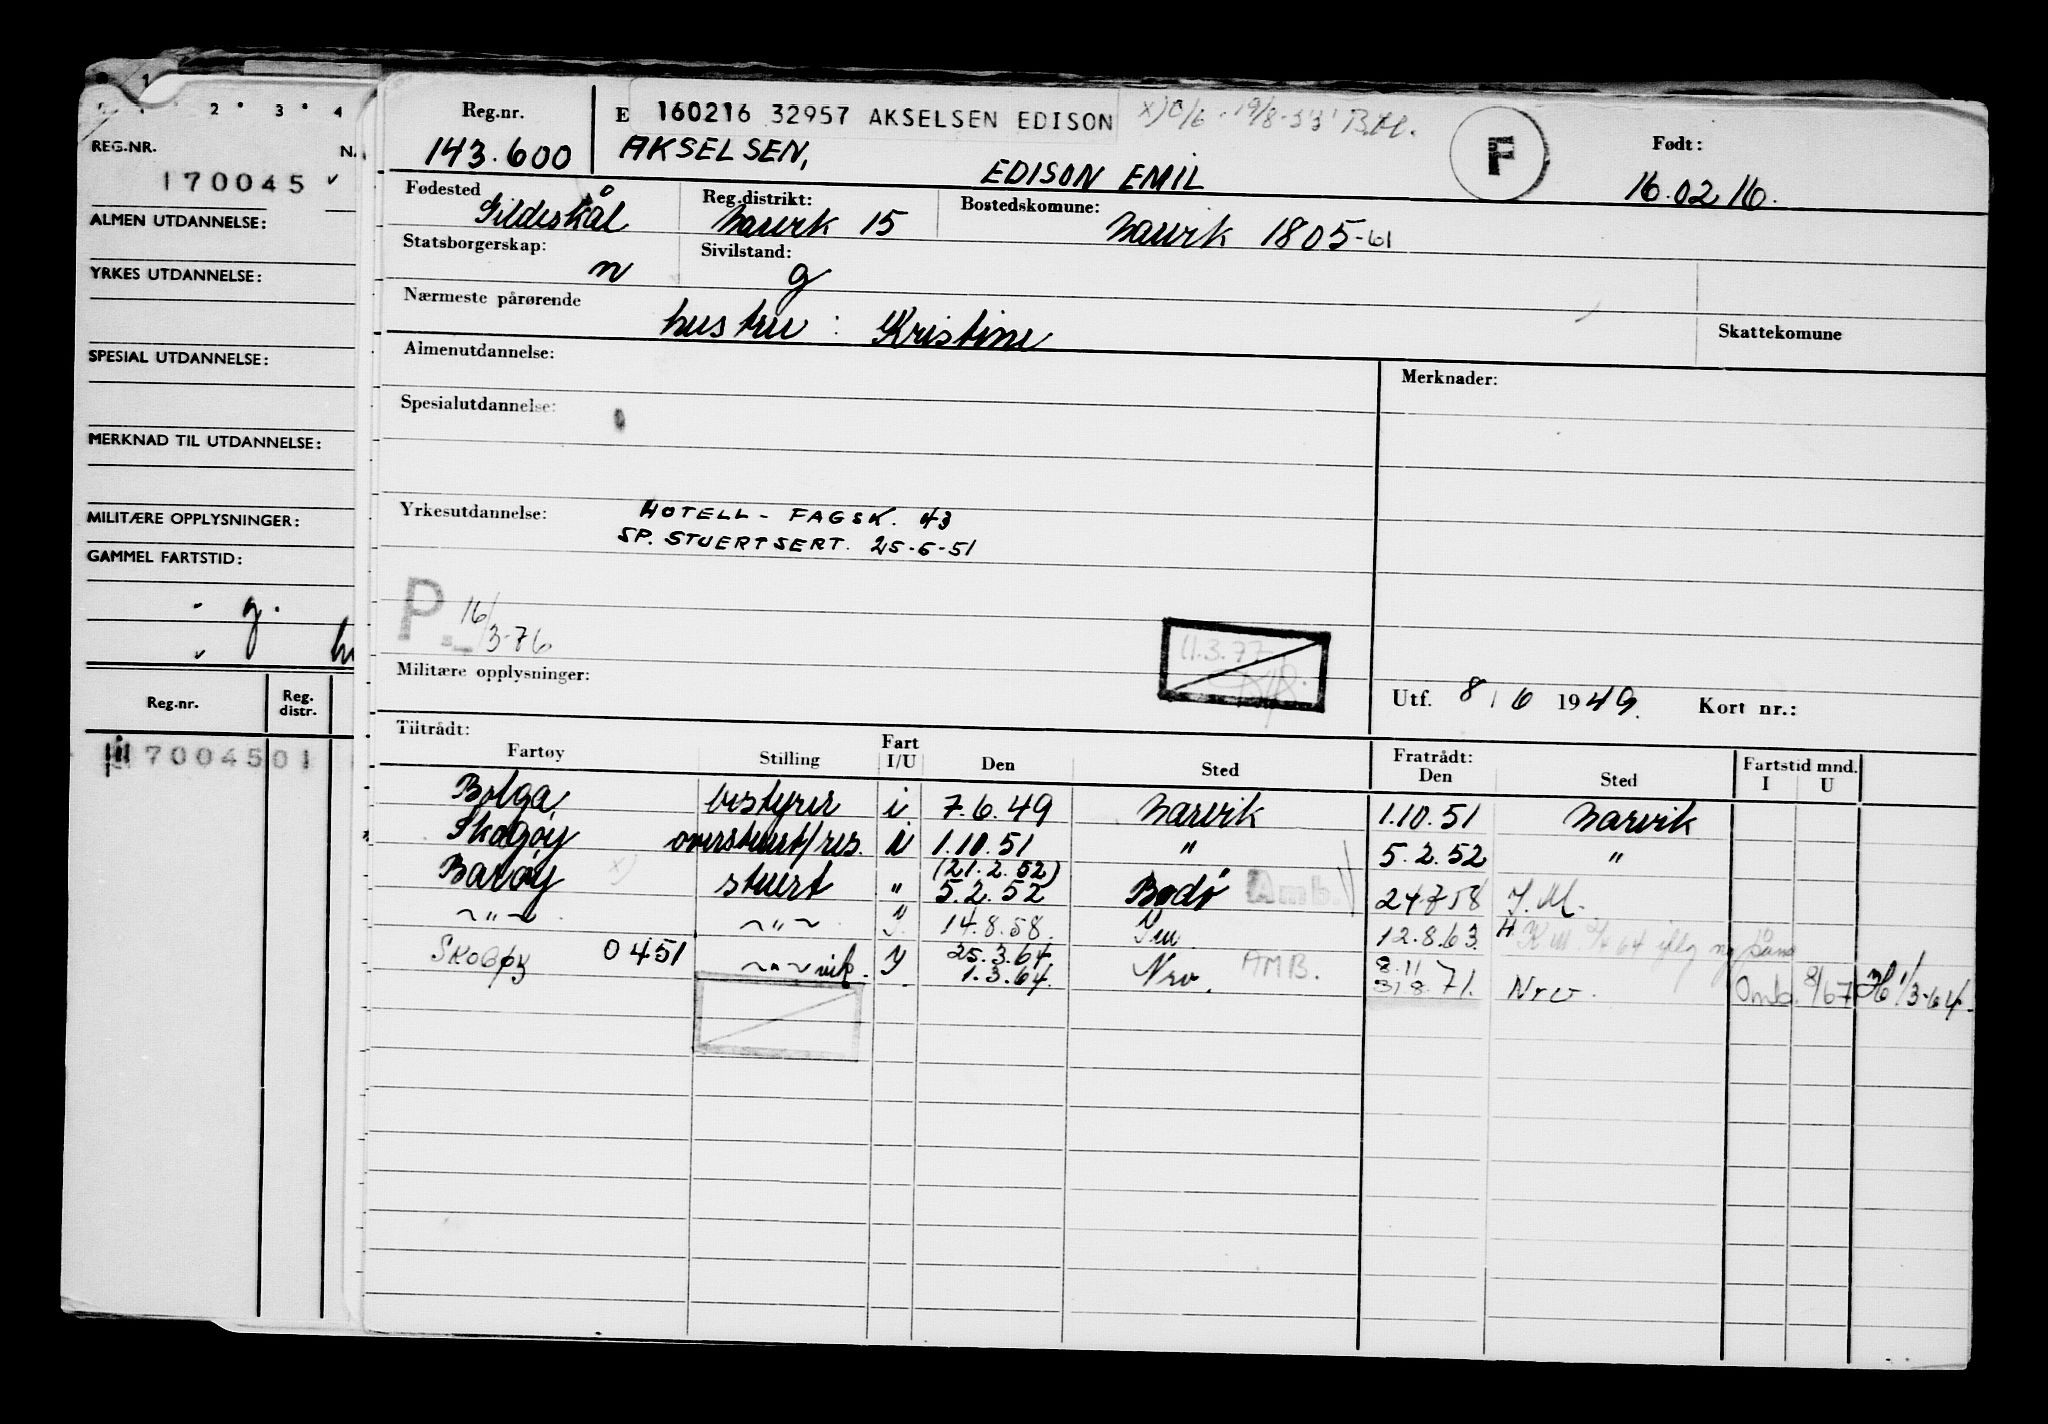 1
2 3 4
REG.NR.
170045
ALMEN UTDANNELSE:
YRKES UTDANNELSE:
SPESIAL UTDANNELSE:
MERKNAD TIL UTDANNELSE:
MILITÆRE OPPLYSNINGER:
GAMMEL FARTSTID:
g.
Reg.nr. Reg. distr.
7004501
Reg.nr. E 160216 32957 AKSELSEN EDISON
143.600 AKSELSEN, EDISON EMIL F Født: 16.02 16.
Fødested Gildeskål Reg.distrikt: Narvik 15 Bostedskomune: Narvik 1805-61
Statsborgerskap: n Sivilstand: g
Nærmeste pårørende hustru : Kristine Skattekomune
Almenutdannelse: Merknader:
Spesialutdannelse:
Yrkesutdannelse: HOTELL - FAGSK. 43
SP. STUERTSERT. 25-6-51
P. 16/3-76
11.3.77
Militære opplysninger: Utf. 8 / 6 1949. Kort nr.:
Tiltrådt: Fratrådt: Fartstid mnd.
Fartøy Stilling Fart I/U Den Sted Den Sted I U
Bolga bestyrer i 7.6.49 Narvik 1.10.51 Narvik
Skogøy overstuert/res. i 1.10.51 " 5.2.52 "
(21.2.52)
Barøy x) stuert " 5.2.52 Bodø Amb. 24.7.58 I.M.
~"~ ~"~ I. 14.8.58. 12.8.63.
Skogøy 0451 ~"~ vik. I 25.3.64. AMB. 8.11
1.3.64. Nrv. 31.8.71. Nrv. Omb. 8/67 1/3-64.